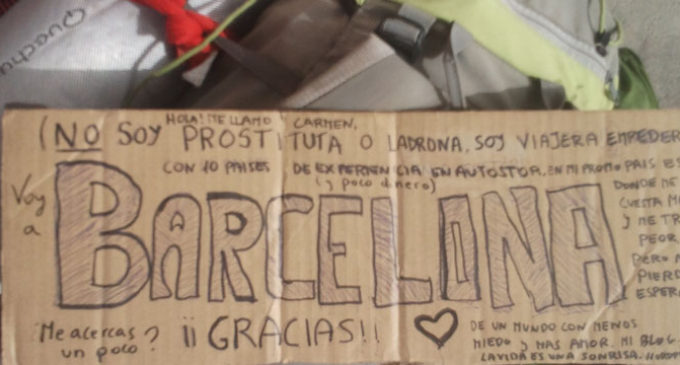 Quechu
HOLA! ME LLAMO CARMEN,
(NO SOY PROSTITUTA O LADRONA, SOY VIAJERA EMPEDER
CON 10 PAISES DE EXPERIENCIA EN AUTOSTOP. EN MI PROPIO PAIS ES
(y poco dinero)
DONDE ME
CUESTA MA
y ME TR
PEOR.
PERO N
PIERD
ESPER
Voy
a
BARCELONA
Me acercas
un poco?
¡¡GRACIAS!!
DE UN MUNDO CON MENOS
MIEDO y MAS AMOR. MI BLOG.
LAVIDA ES UNA SONRISA.